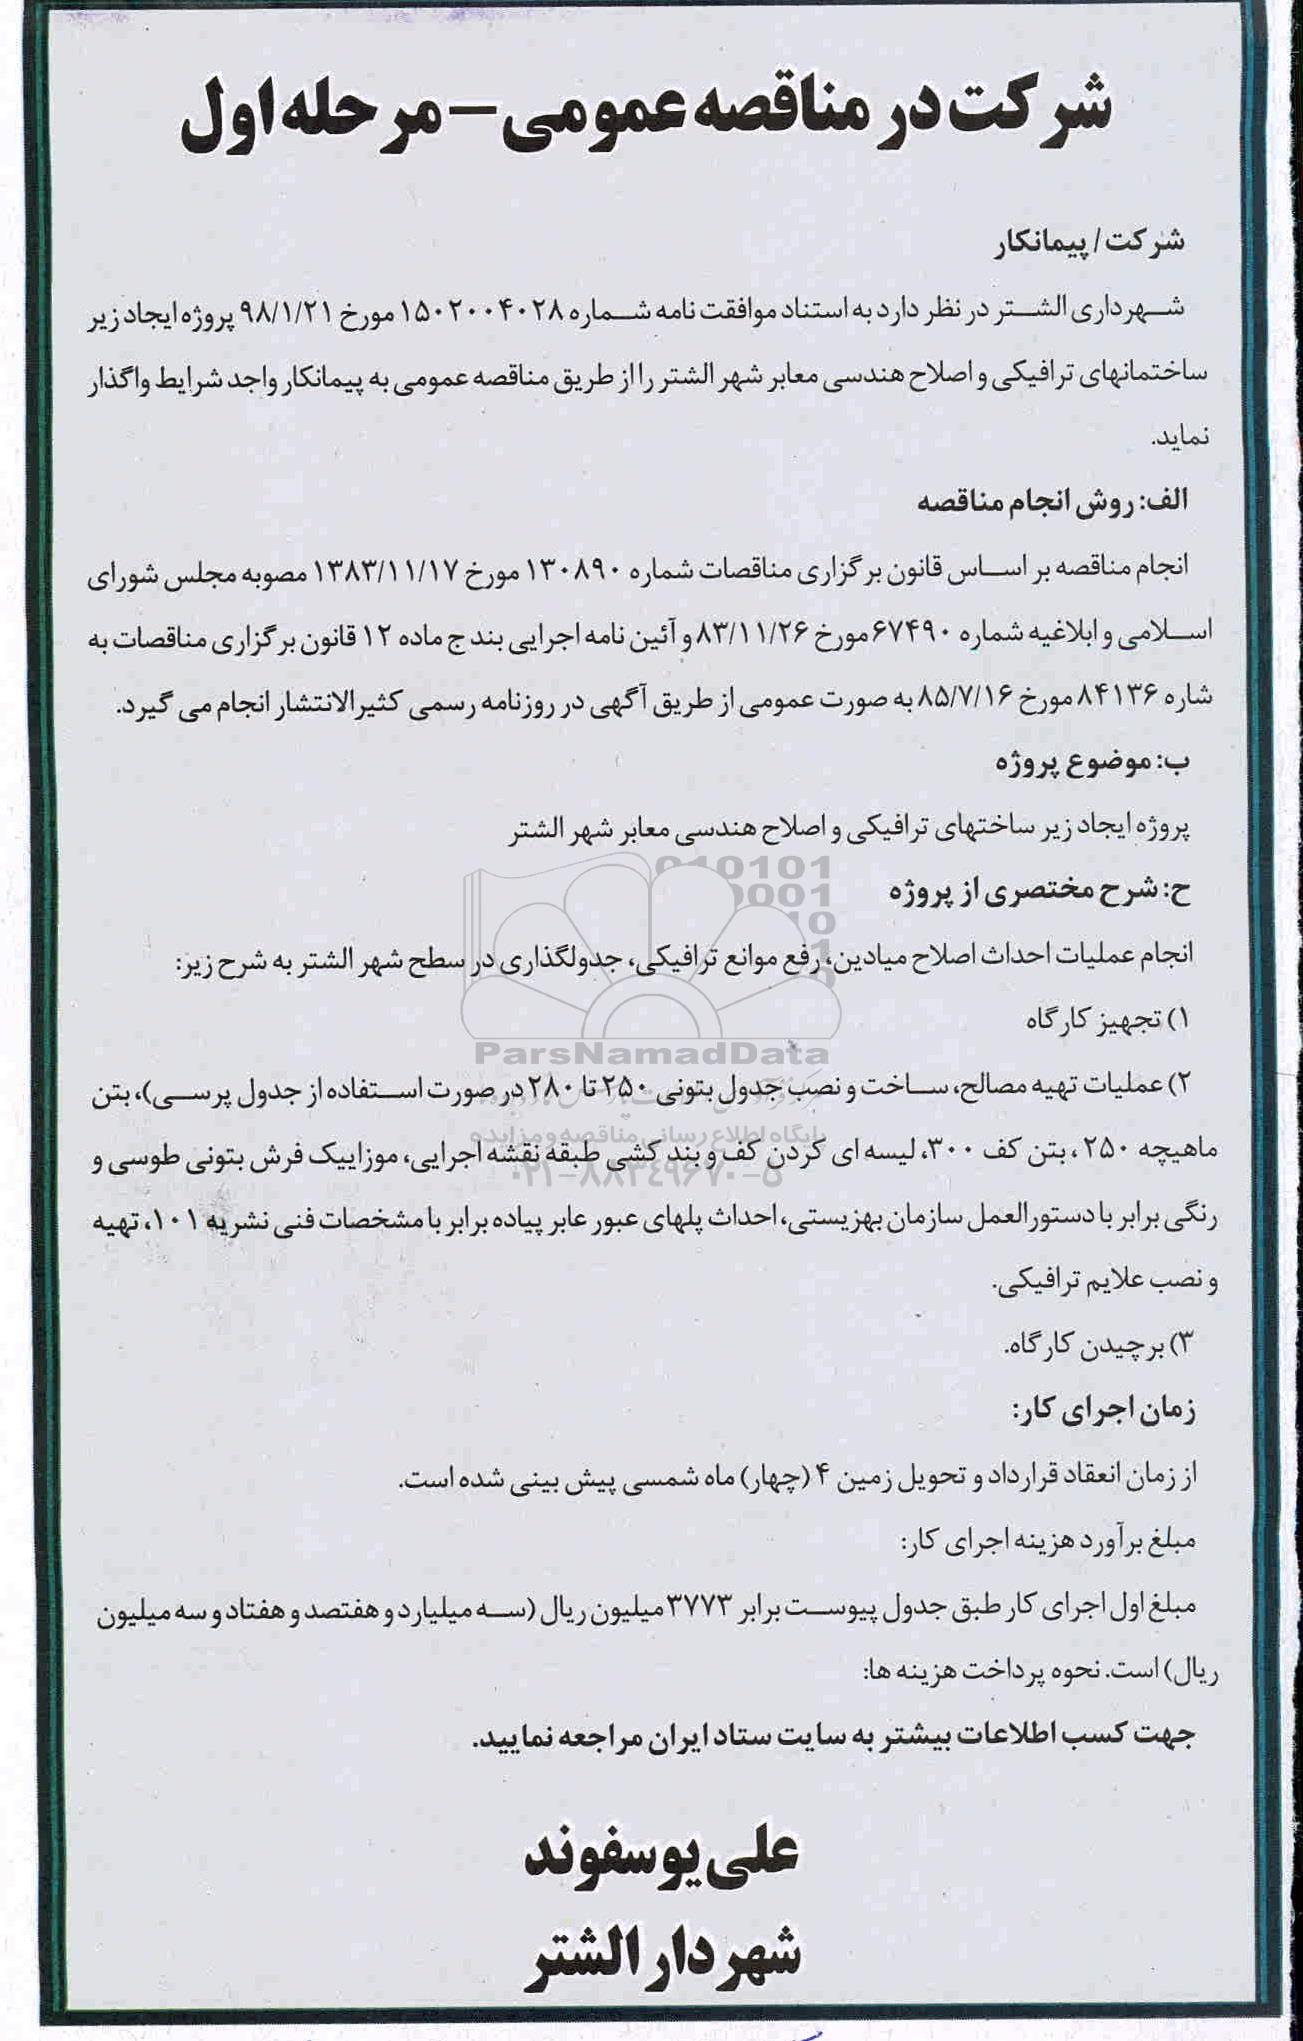 شرکت در مناقصه عمومی - مرحله اول
شرکت / پیمانکار
شهرداری الشتر در نظر دارد به استناد موافقت نامه شماره ۱۵۰۲۰۰۴۰۲۸ مورخ ۹۸/۱/۲۱ پروژه ایجاد زیر
ساختمانهای ترافیکی و اصلاح هندسی معابر شهر الشتر را از طریق مناقصه عمومی به پیمانکار واجد شرایط واگذار
نماید.
الف: روش انجام مناقصه
انجام مناقصه بر اساس قانون برگزاری مناقصات شماره ۱۳۰۸۹۰ مورخ ۱۳۸۳/۱۱/۱۷ مصوبه مجلس شورای
اسلامی و ابلاغیه شماره ۶۷۴۹۰ مورخ ۸۳/۱۱/۲۶ و آئین نامه اجرایی بند ج ماده ۱۲ قانون برگزاری مناقصات به
شاره ۸۴۱۳۶ مورخ ۸۵/۷/۱۶ به صورت عمومی از طریق آگهی در روزنامه رسمی کثیرالانتشار انجام می گیرد.
ب: موضوع پروژه
پروژه ایجاد زیر ساختهای ترافیکی و اصلاح هندسی معابر شهر الشتر
ح: شرح مختصری از پروژه
انجام عملیات احداث اصلاح میادین، رفع موانع ترافیکی، جدولگذاری در سطح شهر الشتر به شرح زیر:
۱) تجهیز کارگاه
ParsNamadData
۲) عملیات تهیه مصالح، ساخت و نصب جدول بتونی ۲۵۰ تا ۲۸۰ در صورت استفاده از جدول پرسی)، بتن
پایگاه اطلاع رسانی مناقصه و مزایده
ماهیچه ۲۵۰ ، بتن کف ۳۰۰، لیسه ای کردن کف و بند کشی طبقه نقشه اجرایی، موزاییک فرش بتونی طوسی و
۰۲۱-۸۸۳۴۹۶۷۰-۵
رنگی برابر با دستورالعمل سازمان بهزیستی، احداث پلهای عبور عابر پیاده برابر با مشخصات فنی نشریه ۱۰۱، تهیه
و نصب علایم ترافیکی.
۳) برچیدن کارگاه.
زمان اجرای کار:
از زمان انعقاد قرارداد و تحویل زمین ۴ (چهار) ماه شمسی پیش بینی شده است.
مبلغ برآورد هزینه اجرای کار:
مبلغ اول اجرای کار طبق جدول پیوست برابر ۳۷۷۳ میلیون ریال (سه میلیارد و هفتصد و هفتاد و سه میلیون
ریال) است. نحوه پرداخت هزینه ها:
جهت کسب اطلاعات بیشتر به سایت ستاد ایران مراجعه نمایید.
علی یوسفوند
شهردار الشتر